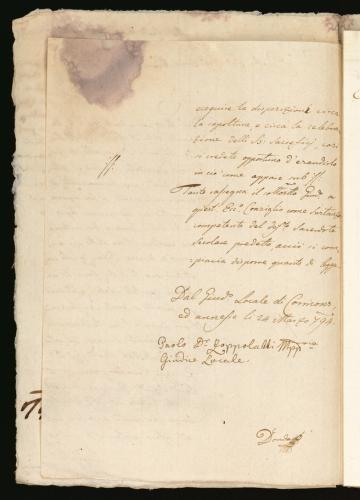 eseguire la disposizione circa
la sepoltura, e circa la celebra-
zione delli Si Sacrifizj, così
si crede opportuno d'
in ciò come appare sub //.
//.
Tanto rassegna il sottoscritto Giud. a
quest' Ecc. Consiglio come
competente del Sacerdote
Secolare predetto, acciò si com-
piaccia disporre quanto di
Dal Giud.o Locale di Cormons
ed annesse li 24 Marzo 794.
Paolo D.r Zoppolatti
Giudice Locale